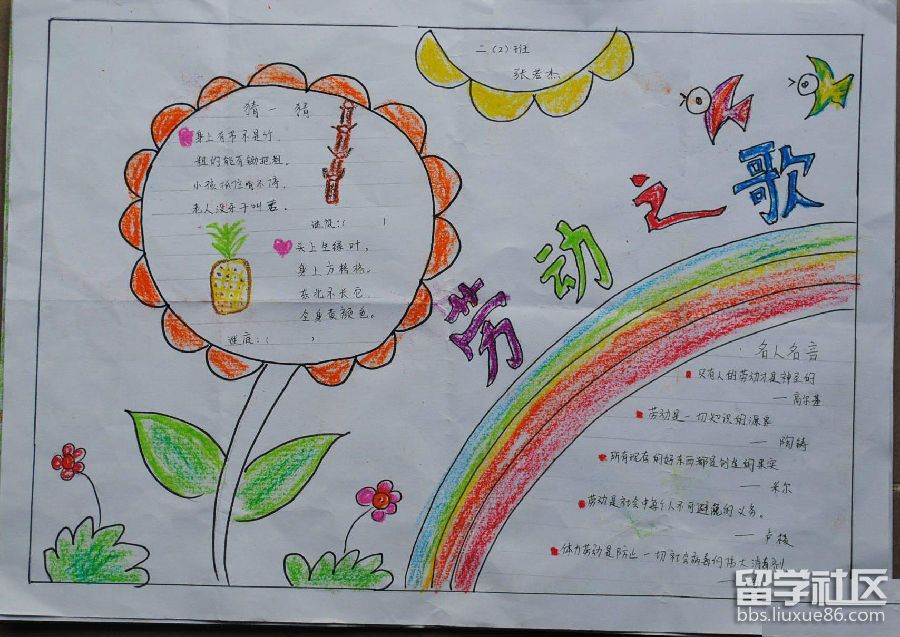 二（2）班
张若杰
劳动之歌
猜一猜
身上有节不是竹，
粗的能有锄把粗，
小孩抓住啃不停，
老人没牙干叫苦．
谜底：（ ）
头上生绿叶，
身上方格格。
东北不长它
全身黄颜色。
谜底：（ ）
名人名言
只有人的劳动才是神圣的
— 高尔基
劳动是一切知识的源泉
— 陶铸
所有现存的好东西都是创造的果实
— 米尔
劳动是社会中每个人不可避免的义务。
— 卢梭
体力劳动是防止一切社会病毒的伟大消毒剂
留学社区
bbs.liuxue86.com